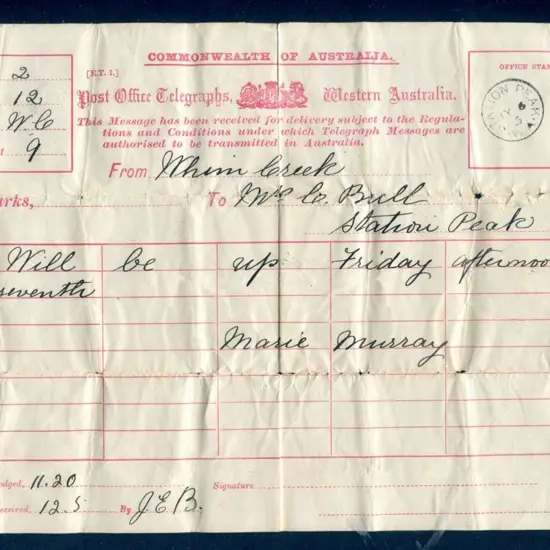 COMMONWEALTH OF AUSTRALIA.
[E.T. 1.]
OFFICE STAM
2
12
W.C
9
Post Office Telegraphs, Western Australia.
This Message has been received for delivery subject to the Regula-
tions and Conditions under which Telegraph Messages are
authorised to be transmitted in Australia.
STATION PEAK
From Whim Creek
arks, To Mrs C. Bull
Station Peak
Will be up Friday afternoo
seventh
Marie Murray
odged. 11.20 Signature
eceived. 12.5 By J.E.B.